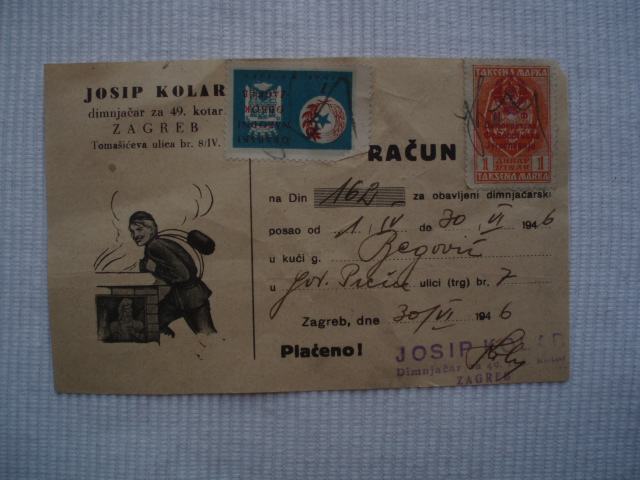 JOSIP KOLAR
dimnjačar za 49. kotar.
ZAGREB
Tomašićeva ulica br. 8/IV.
GRADSKI
NARODNI
ODBOR
ZAGREB
TAKSENA MARKA
1 DINAR 1
TAKSENA MARKA
RAČUN
na Din 162 za obavljeni dimnjačarski
posao od 1. IV do 30 VI 1946
u kući g. Begović
u Gor. ulici (trg) br. 7
Zagreb, dne 30/VI 1946
Plaćeno!
JOSIP KOLAR
Dimnjačar za 49. kotar
ZAGREB